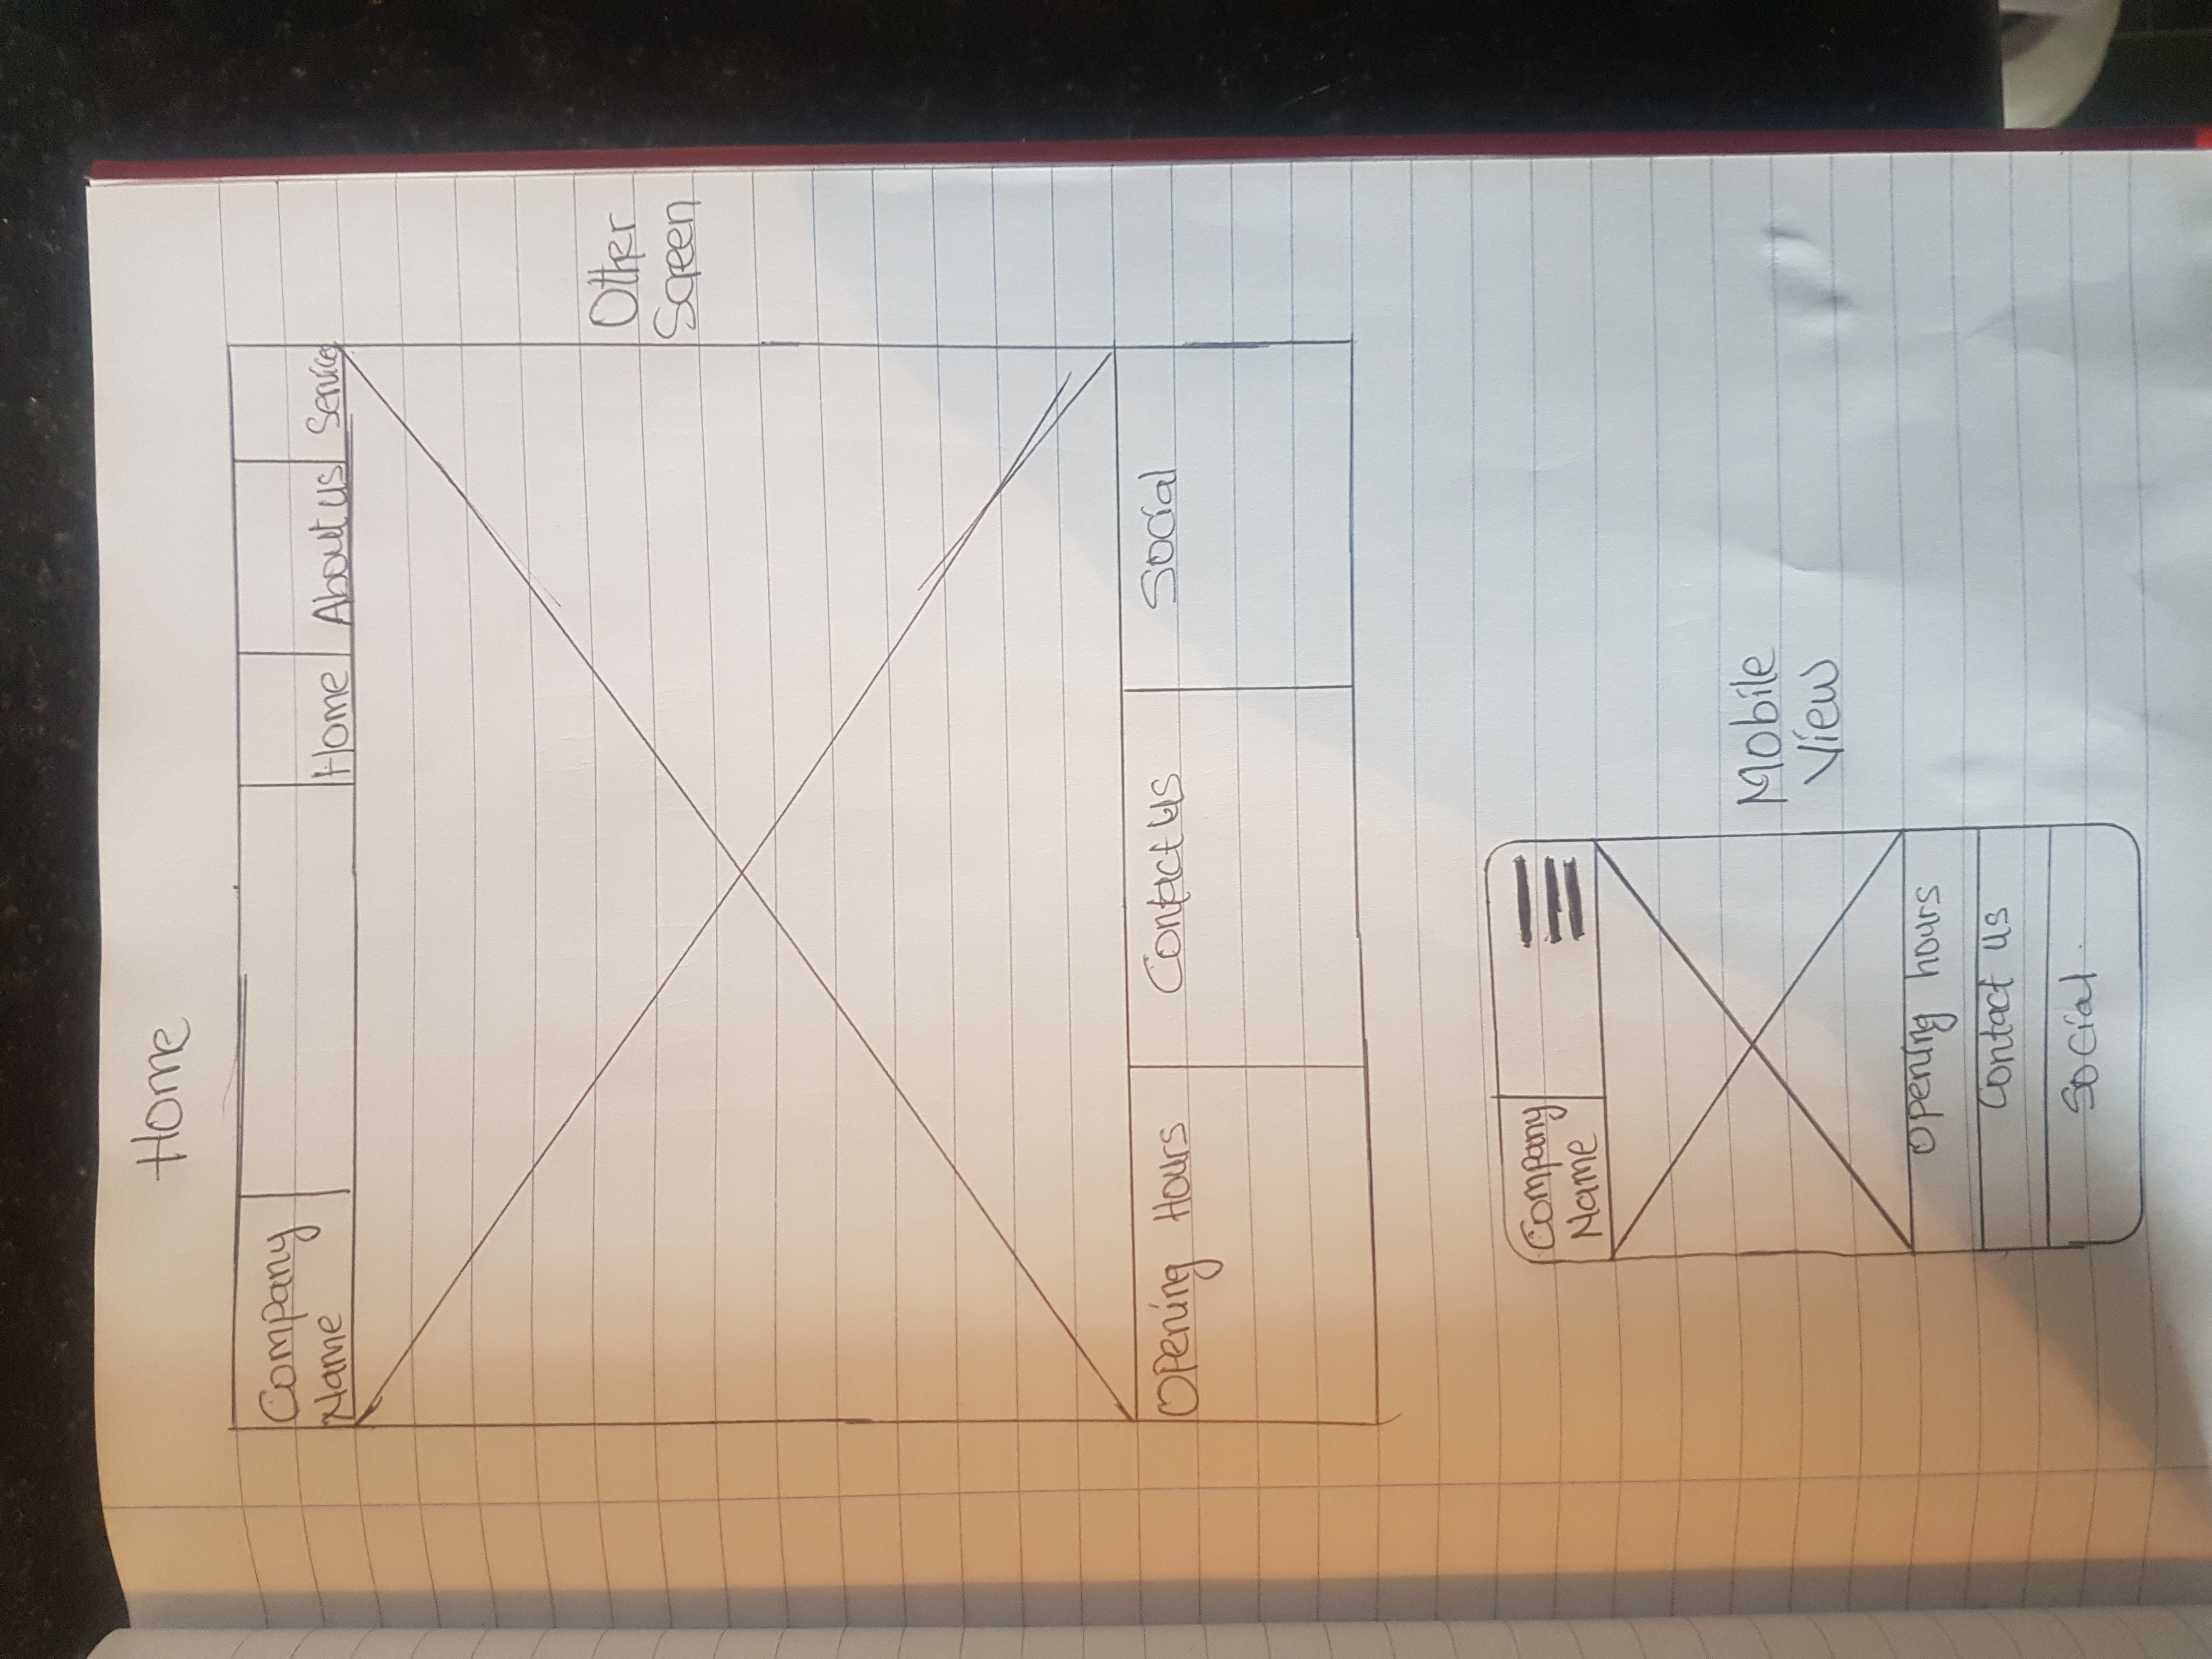 Home
Company
Name
Home
About us
Service
Other
Screen
Opening Hours
Contact Us
Social
Company
Name
Mobile
View
Opening hours
Contact us
Social